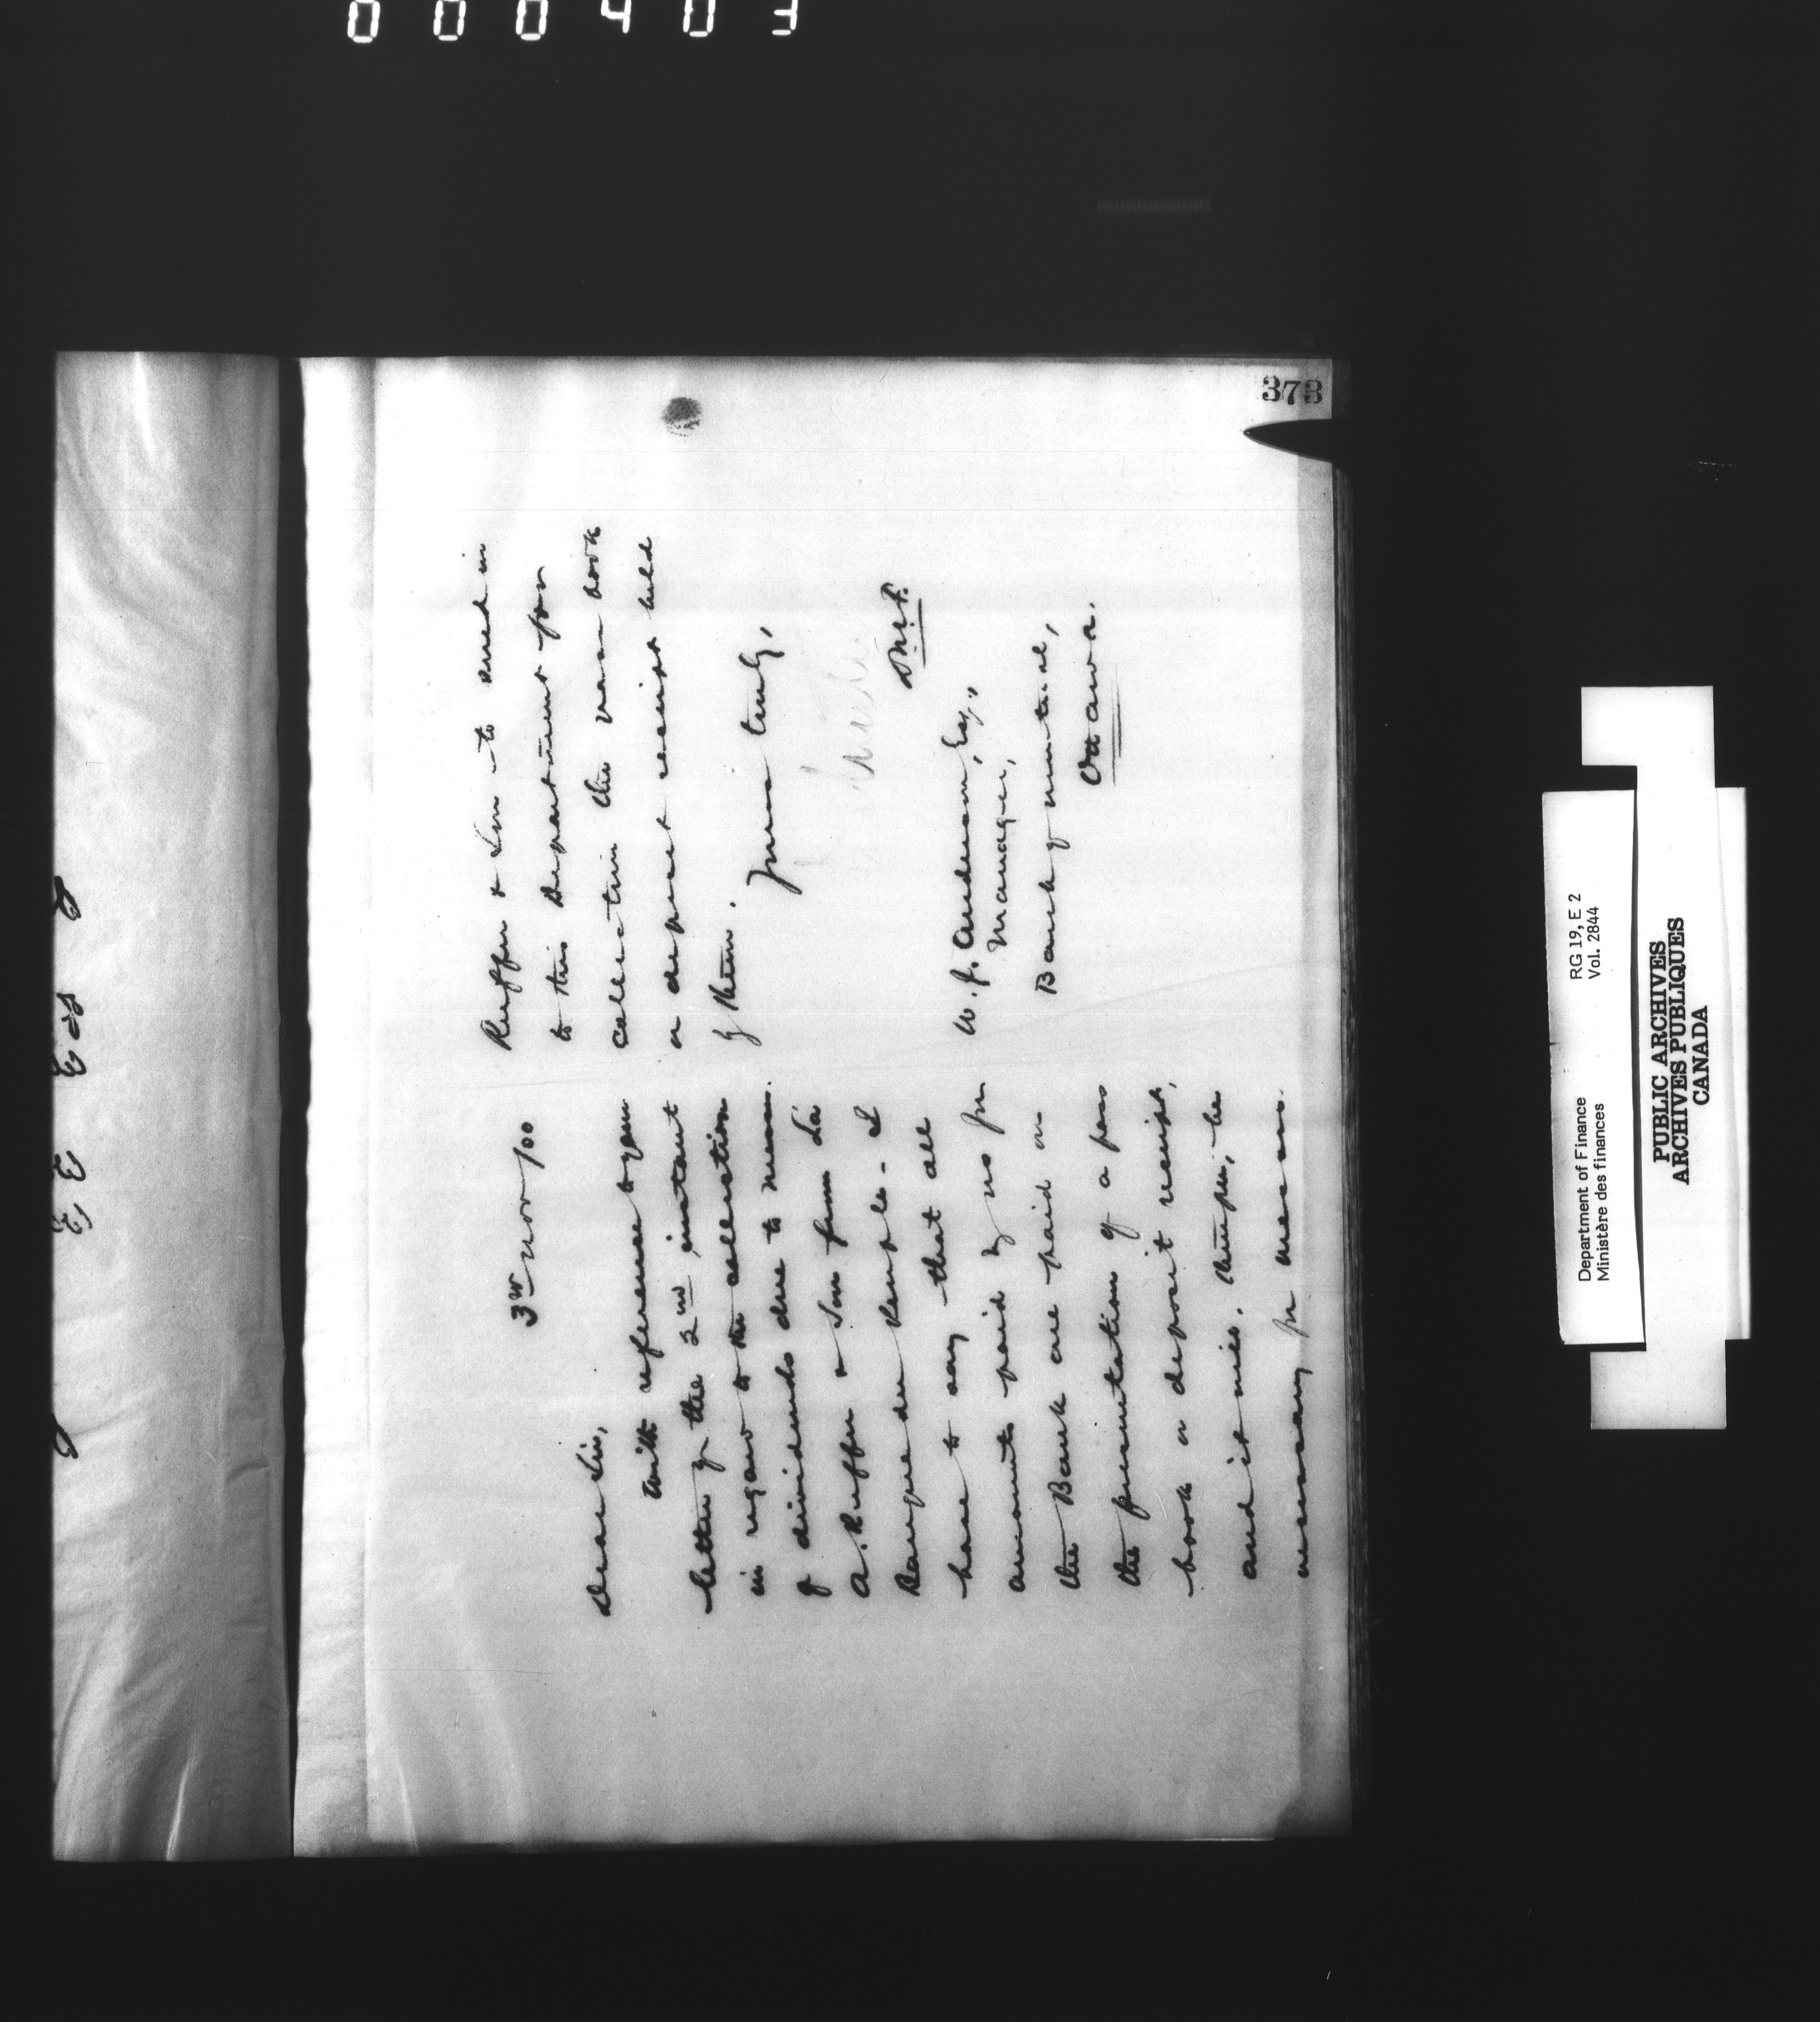 000403
373
3rd Nov /00
Dear Sir,
With reference to your
letter of the 2nd instant
in regard to the collection
of dividends due to Messrs.
A. Ruffer & Son from La
Banque du Peuple - I
have to say that all
amounts paid by us for
the Bank are paid on
the presentation of a pass
book or deposit receipt,
and it will, therefore, be
necessary for Messrs.
Ruffer & Son to send in
to this Department for
collection the pass book
or deposit receipt held
by them.
Yours truly,
D.M.F.
W. J. Anderson, Esq.,
Manager,
Bank of Montreal,
Ottawa.
Department of Finance RG 19, E 2
Ministère des finances Vol. 2844
PUBLIC ARCHIVES
ARCHIVES PUBLIQUES
CANADA